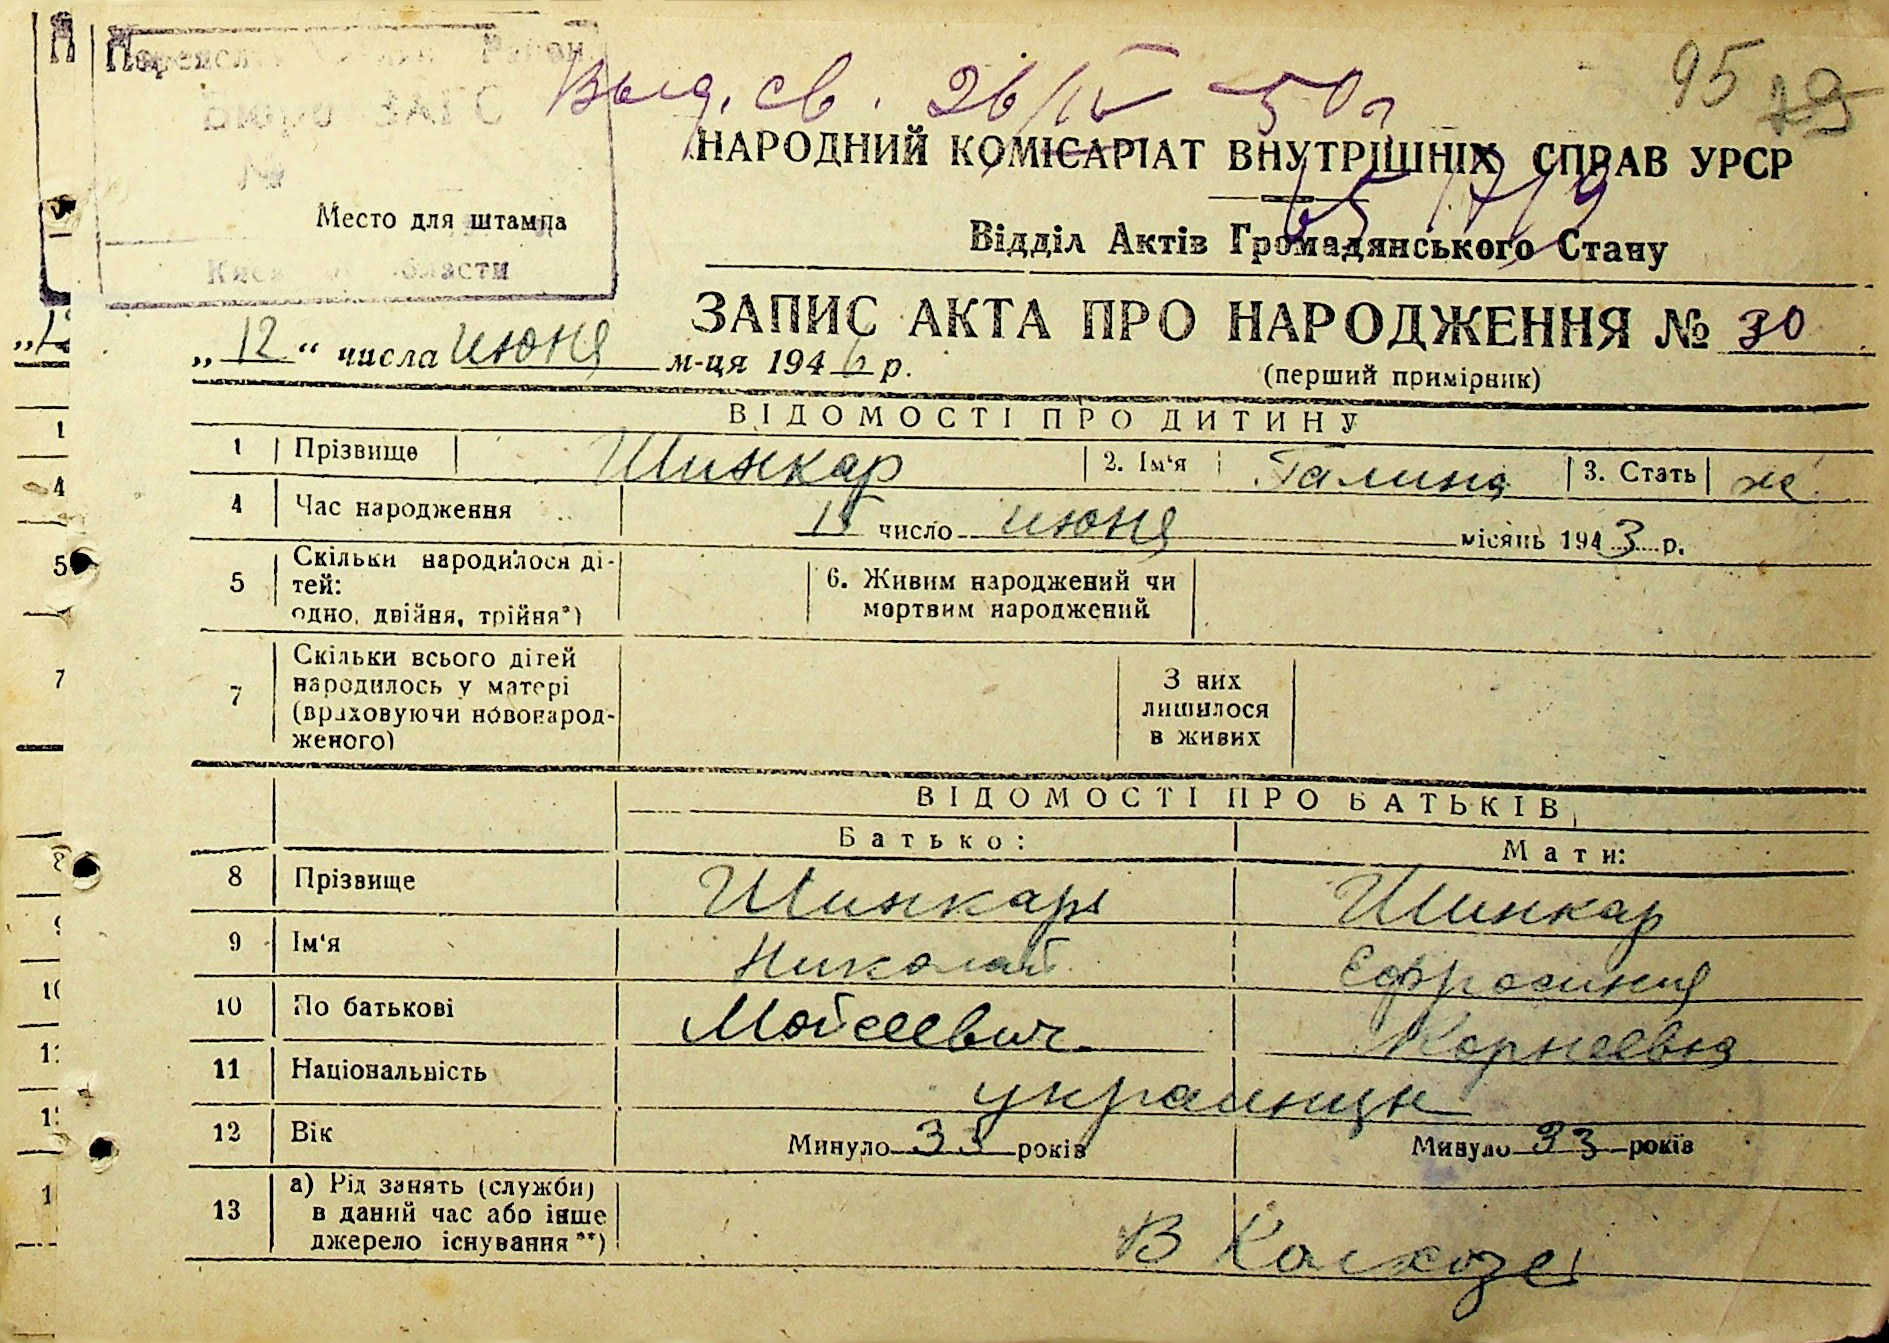 Район
Бюро ЗАГС
№
Место для штампа
области
Выд. св. 26/IV 50 г
95 79
НАРОДНИЙ КОМІСАРІАТ ВНУТРІШНІХ СПРАВ УРСР
Відділ Актів Громадянського Стану
ЗАПИС АКТА ПРО НАРОДЖЕННЯ № 30
„12“ числа июня м-ця 1946 р.
(перший примірник)
ВІДОМОСТІ ПРО ДИТИНУ
1 Прізвище Шинкар 2. Ім‘я Галина 3. Стать ж
4 Час народження 15 число июня місяць 1943 р.
5 Скільки народилося ді-
тей:
одно, двійня, трійня*)
6. Живим народжений чи
мертвим народжений
7 Скільки всього дітей
народилось у матері
(враховуючи новонарод-
женого)
З них
лишилося
в живих
ВІДОМОСТІ ПРО БАТЬКІВ
Батько: Мати:
8 Прізвище Шинкарь Шинкар
9 Ім‘я Николай Ефросиния
10 По батькові Мойсеевич Корнеевна
11 Національність украинцы
12 Вік Минуло 33 років Минуло 33 років
13 а) Рід занять (служби)
в даний час або інше
джерело існування**)
В Колхозе